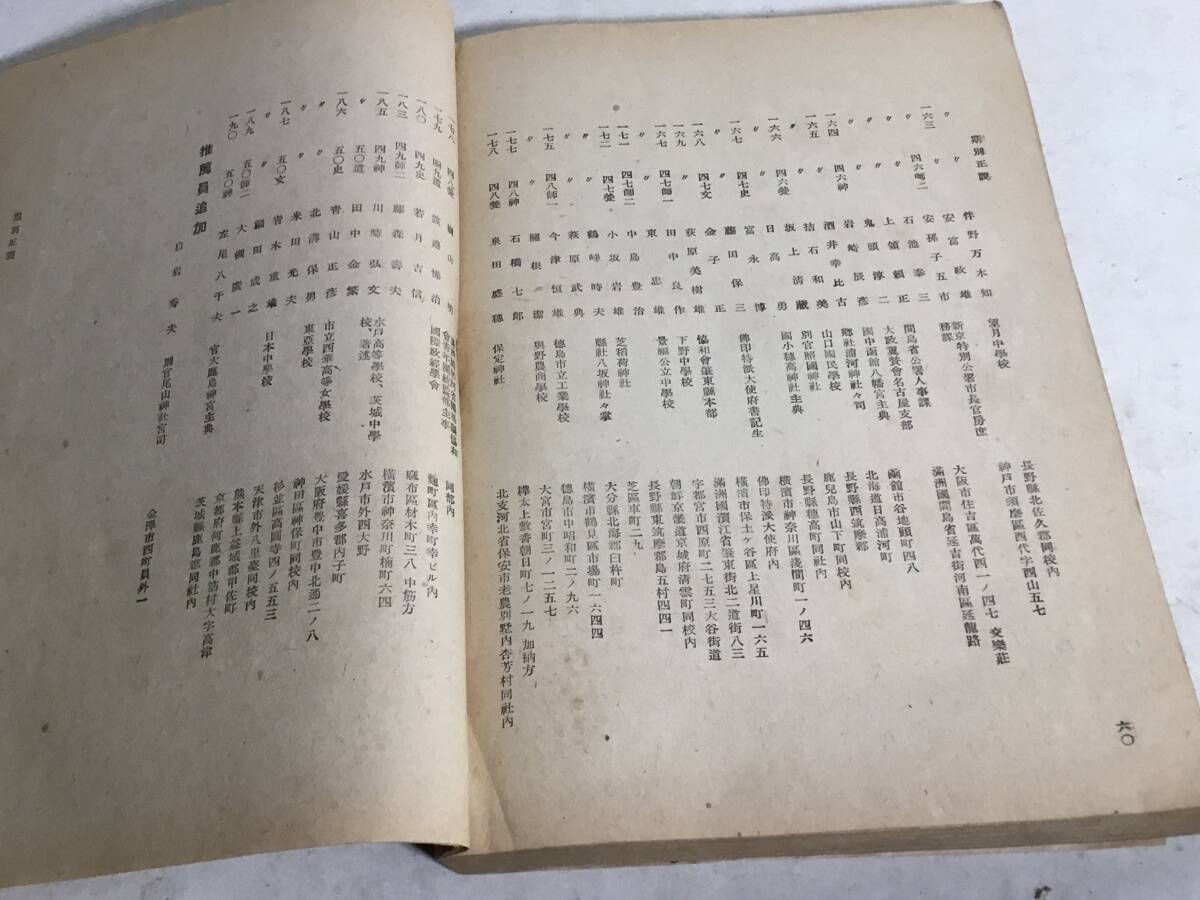 期別正誤
〃 〃 伴野万木知 望月中學校 長野縣北佐久郡同校内
〃 〃 安富政雄 新京特別公署市長官房庶務課
〃 安孫子五市 神戸市須磨區西代字四山五七
一六三 四六師二 石池泰三 大阪市住吉區萬代西一ノ四七 交樂莊
〃 〃 上領頼正 間島省公署人事課 滿洲國間島省延吉街河南區延龍路
〃 〃 鬼頭淳二 大政翼賛會名古屋支部
〃 〃 岩崎辰彦 國中函館八幡宮主典 函館市谷地頭町四八
一六四 四六神 酒井幸比古 郷社浦河神社々司 北海道日高浦河町
長野縣西筑摩郡
一六五 〃 拮石和美 山口國民學校 鹿兒島市山下町同校内
〃 坂上清藏 別官照國神社
一六六 四六養 日高勇 國小穗高神社主典 長野縣穗高町同社内
〃 富永博 横濱市神奈川區淺間町一ノ四六
一六七 四七史 藤田保三 佛印特派大使府書記生 佛印特派大使府内
〃 〃 金子正 横濱市保土ヶ谷區上星川町一六五
一六八 四七文 萩原美樹雄 協和會肇東縣本部 滿洲國濱江省肇東街北二道街八三
一六九 〃 田中良作 下野中學校 宇都宮市西原町二七五三大谷街道
一六七 四七師一 東忠雄 景福公立中學校 朝鮮京畿道京城府清雲町同校内
〃 〃 中島豊治 長野縣東筑摩郡島五村四四一
一七一 四七師二 小坂岩雄 芝稻荷神社 芝區車町二九
一七二 四七養 鶴峰時夫 縣社八坂神社々掌 大分縣北海部郡臼杵町
〃 〃 萩原武典 横濱市鶴見區市場町一六四四
一七五 四八師一 今津恒雄 德島市立工業學校 德島市中昭和町二ノ九六
〃 〃 關根潔 與野農商學校 大宮市宮町三ノ一二五七
一七七 四八神 石橋七郎 樺太上敷香朝日町七ノ一九 加納方
一七八 四八養 泉田盛穗 保定神社 北支河北省保安市老農別墅内杏芳村同社内
六〇
一七八 四八養
一七九 四九道 渡邊悌治 同部内
一八〇 四九史 若月吉信 國際政學會 麹町區内幸町幸ビル内
一八三 四九師二 藤森壽夫 麻布區材木町三八 中筋方
一八五 四九神 川崎弘文 水戸高等學校、茨城中學校、著述 横濱市神奈川町楠町六四
〃 五〇道 田中金繁 水戸市外西大野
一八六 五〇史 青山正彦 市立西華高等女學校 愛媛縣喜多郡内子町
〃 〃 北澤保男 東亞學校 大阪府豊中市豊中北通二ノ八
〃 〃 米田光夫 神田區神保町同校内
一八七 五〇文 青木重雄 日本中學校 杉並區高圓寺四ノ五五三
〃 〃 鍋田成之 天津市外八里臺同校内
一八九 五〇師二 大槻鷹一 熊本縣上益城郡甲佐町
一九〇 五〇神 左尾八千夫 官大鹿島神宮主典 京都府何鹿郡中筋村大字高津
茨城縣鹿島郡同社内
推薦員追加
白岩秀夫 別官尾山神社宮司 金澤市西町員外一
期別正誤